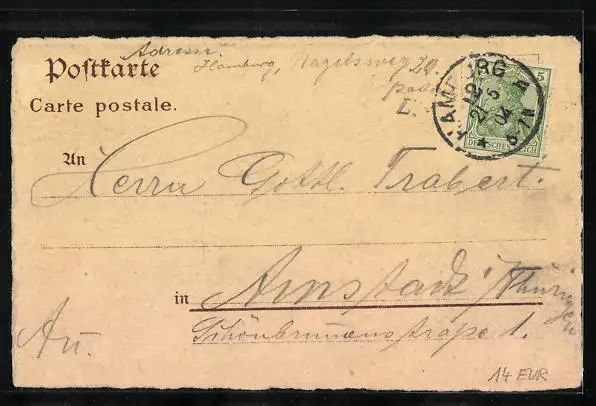 Adresse.
Postkarte
Hamburg, Nagelsweg 20
Carte postale.
HAMBURG
5
DEUTSCHES REICH
An
Herrn Gottl. Trabert.
in
Arnstadt / Thüringen
Schönbrunnenstraße 1.
Au.
14 EUR